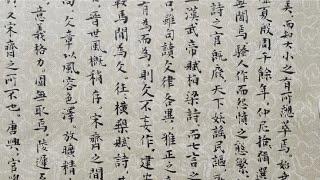 美而知大小之有所總萃焉始
夏殷周千餘年仲尼緝拾選
焉騷人作而怨憤之態繁
詩之官既廢天下妖謠民謳
漢武帝賦柏梁詩而七言之
言雖句讀文律各異雅正之
有為而為則文不妄作建安
馬間為文往橫槊賦詩
晉世風概稍存宋齊之間
文章以風容色澤放曠精
意義格力固無取焉陵遲
又宋齊之所不也唐興官